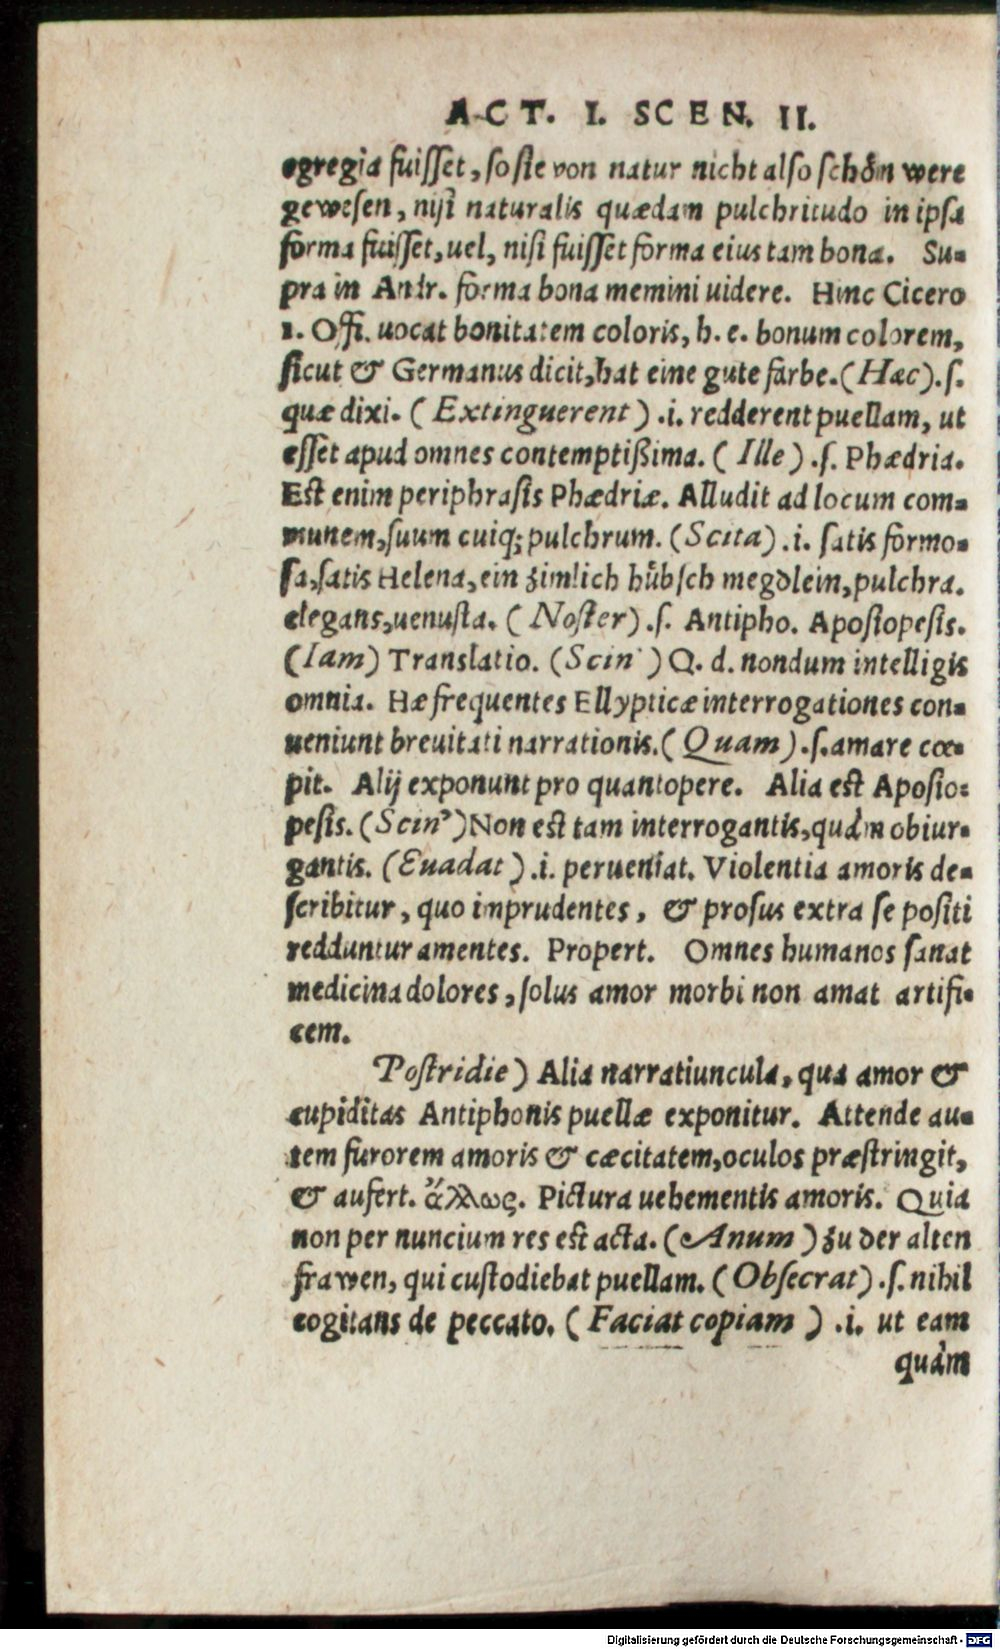 ACT. I. SCEN. II.
egregia fuisset, so sie von natur nicht also schön were
gewesen, nisi naturalis quædam pulchritudo in ipsa
forma fuisset, uel, nisi fuisset forma eius tam bona. Su-
pra in Andr. forma bona memini uidere. Hinc Cicero
1. Offi. uocat bonitatem coloris, h. e. bonum colorem,
sicut & Germanus dicit, hat eine gute farbe. (Hæc) .s.
quæ dixi. (Extinguerent) .i. redderent puellam, ut
esset apud omnes contemptißima. (Ille) .s. Phædria.
Est enim periphrasis Phædriæ. Alludit ad locum com-
munem, suum cuiq; pulchrum. (Scita) .i. satis formo-
sa, satis Helena, ein zimlich hübsch megdlein, pulchra.
elegans, uenusta. (Noster) .s. Antipho. Aposiopesis.
(Iam) Translatio. (Scin') Q. d. nondum intelligis
omnia. Hæ frequentes Ellypticæ interrogationes con-
ueniunt breuitati narrationis. (Quam) .s. amare cœ-
pit. Alij exponunt pro quantopere. Alia est Aposio-
pesis. (Scin') Non est tam interrogantis, quàm obiur-
gantis. (Euadat) .i. perueniat. Violentia amoris de-
scribitur, quo imprudentes, & prosus extra se positi
redduntur amentes. Propert. Omnes humanos sanat
medicina dolores, solus amor morbi non amat artifi-
cem.
Postridie) Alia narratiuncula, qua amor &
cupiditas Antiphonis puellæ exponitur. Attende au-
tem furorem amoris & cæcitatem, oculos præstringit,
& aufert. ἄλλως. Pictura uehementis amoris. Quia
non per nuncium res est acta. (Anum) zu der alten
frawen, qui custodiebat puellam. (Obsecrat) .s. nihil
cogitans de peccato. (Faciat copiam) .i. ut eam
quàm
Digitalisierung gefördert durch die Deutsche Forschungsgemeinschaft - DFG